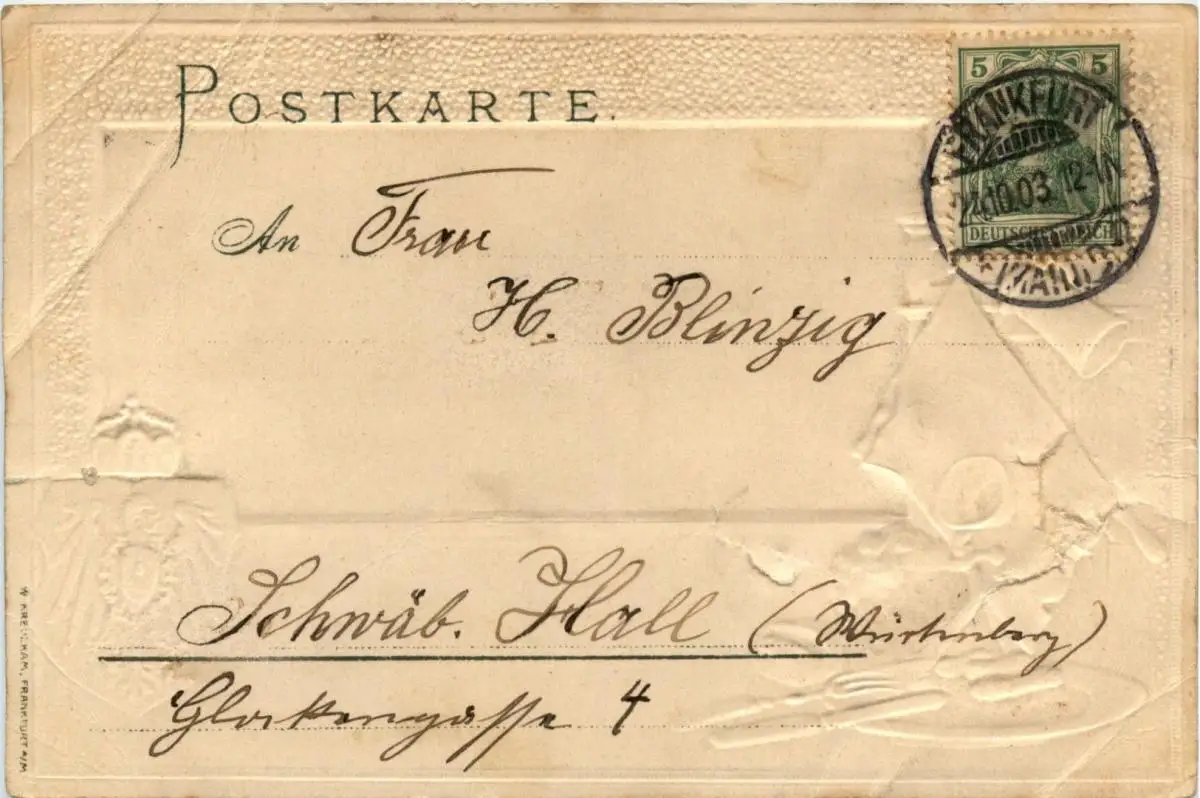 POSTKARTE.
5 5
FRANKFURT
10.03. 12-
DEUTSCHES REICH
* (MAIN)
An Frau
H. Blinzig
Schwäb. Hall (Würtenberg)
Glockengasse 4
FRANKFURT A/M